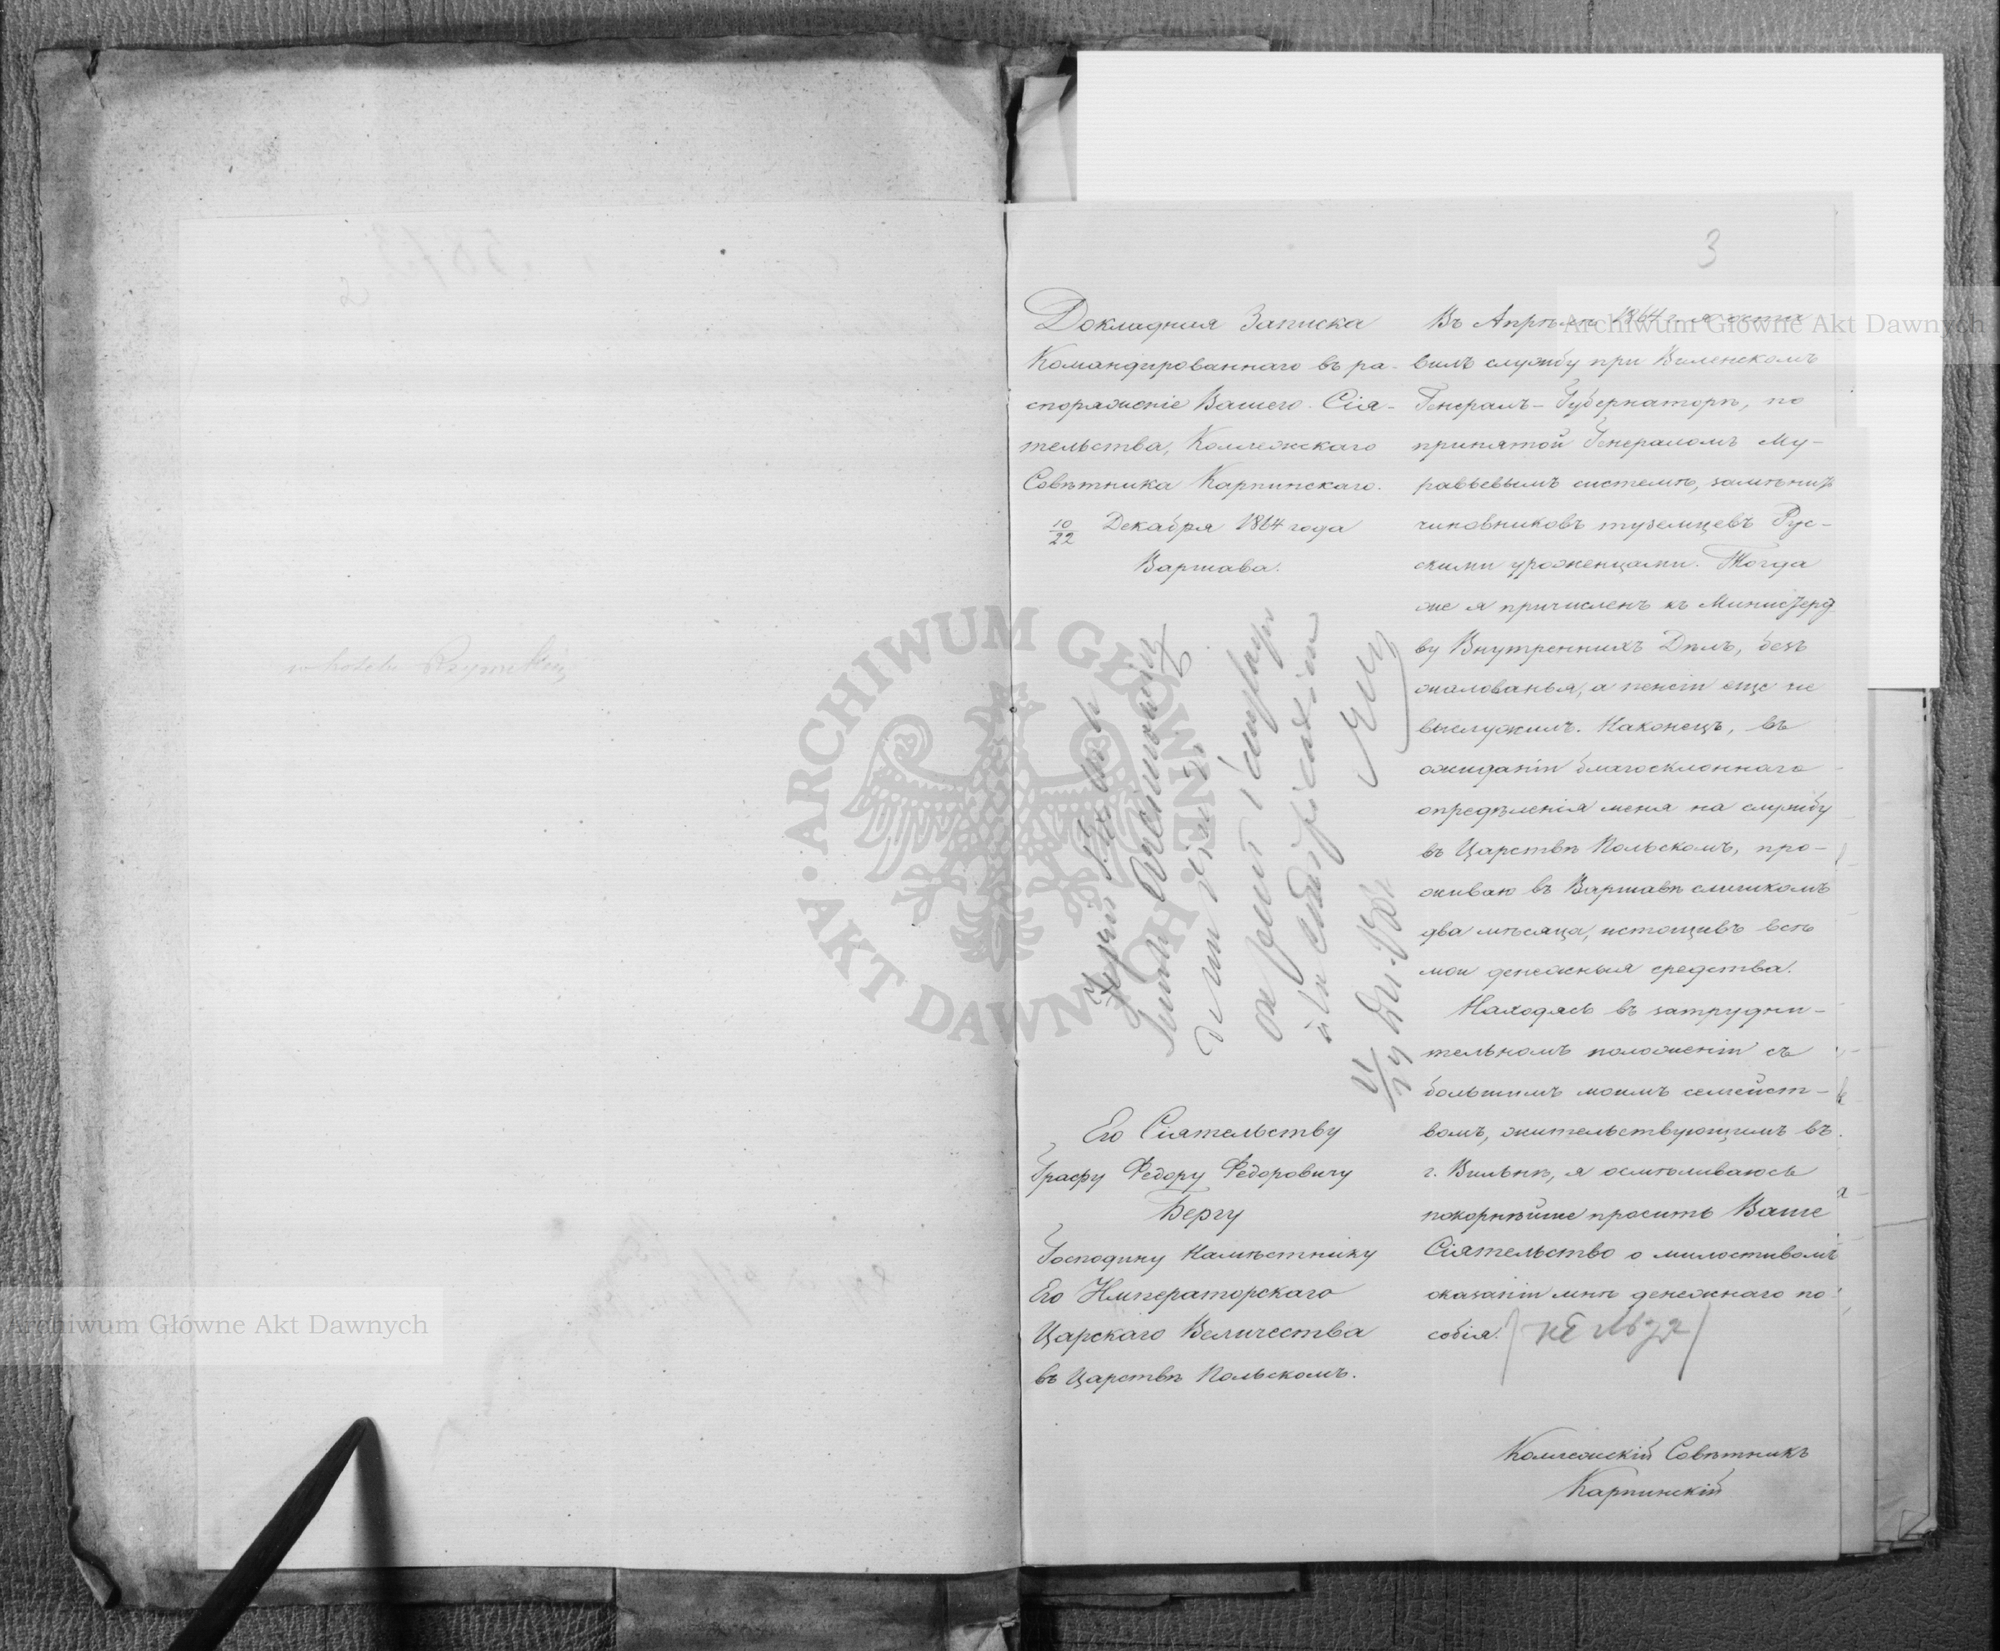 3
Докладная Записка
Командированнаго въ ра-
споряженіе Вашего Сія-
тельства, Коллежскаго
Совѣтника Карпинскаго.
10/22 Декабря 1864 года
Варшава.
Его Сіятельству
Графу Федору Федоровичу
Бергу
Господину Намѣстнику
Его Императорскаго
Царскаго Величества
въ Царствѣ Польскомъ.
Въ Апрѣлѣ 1864 г. я оста
вилъ службу при Виленскомъ
Генералъ-Губернаторѣ, по
принятой Генераломъ Му-
равьевымъ системѣ, замѣнить
чиновниковъ туземцевъ Рус-
скими уроженцами. Тогда
же я причисленъ къ Министерст
ву Внутреннихъ Дѣлъ, безъ
жалованья, а пенсіи еще не
выслужилъ. Наконецъ, въ
ожиданіи благосклоннаго
опредѣленія меня на службу
въ Царствѣ Польскомъ, про-
живаю въ Варшавѣ слишкомъ
два мѣсяца, истощивъ всѣ
мои денежныя средства.
Находясь въ затрудни-
тельномъ положеніи съ
большимъ моимъ семейст-
вомъ, жительствующимъ въ
г. Вильнѣ, я осмѣливаюсь
покорнѣйше просить Ваше
Сіятельство о милостивомъ
оказаніи мнѣ денежнаго по
собія. нельзя
Коллежскій Совѣтникъ
Карпинскій
Archiwum Główne Akt Dawnych
Archiwum Główne Akt Dawnych
ARCHIWUM GŁÓWNE AKT DAWNYCH